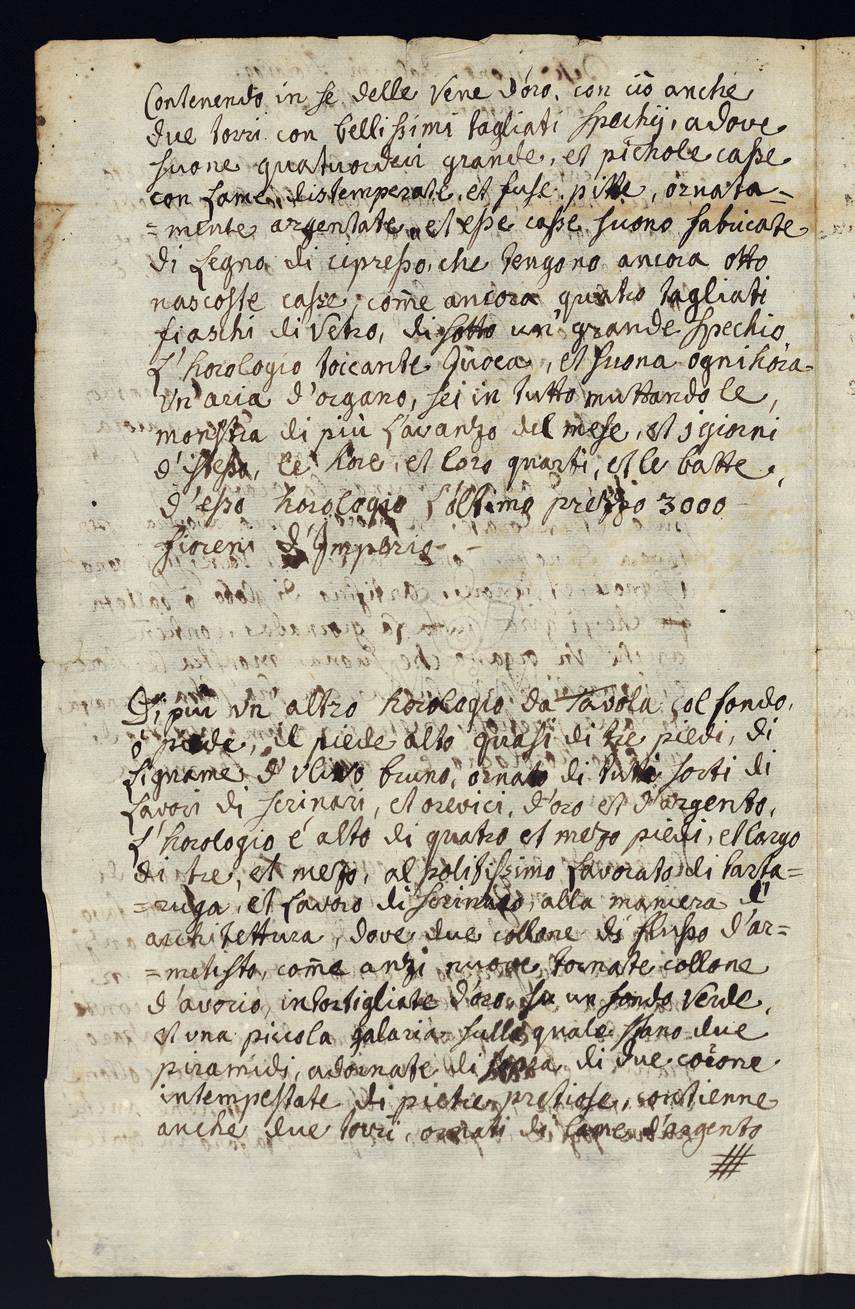 Contenendo in se delle Vene d'oro, con ciò anche
due torri con bellissimi tagliati Spechij, adove
suone quatuordeci grande, et pichole casse
con Lame distemperate, et fuse pitte, ornata=
=mente argentate, et esse casse suono fabricate
di Legno di cipresso, che tengono ancora otto
nascoste casse, come ancora quatro tagliati
fiaschi di Vetro, di sotto un' grande Spechio
L'horologio toccante giuoca, et suona ogni hora
vn' aria d'organo, sei in tutto muttandole,
monstra di più L'avanzo del mese, et j giorni
d'istesso, le hore, et loro quarti, et le batte,
d'esso horologio L'ultimo prezzo 3000
fioreni d'Imperio
Di più vn' altro horologio da Tavola col fondo,
ò piede, il piede alto quasi di tre piedi, di
Ligname d'Vlivo bruno, ornato di tutti sorti di
Lavori di scrinari, et orevici, d'oro et d'argento,
L'horologio è alto di quatro et mezo piedi, et largo
di tre, et mezo, al politissimo Lavorato di tarta=
=ruga, et Lavoro di Scrinaro, alla maniera d'
architettura, dove due collone di flusso d'ar=
=metisto, come anzi nuove tornate collone
d'avorio, intortigliate d'oro, su un fondo Verde,
et vna piccola galaria sulla quale stano due
piramidi, adornate di sopra di due corone
intempestate di pietre pretiose, contienne
anche due torri, ornati di lame d'argento